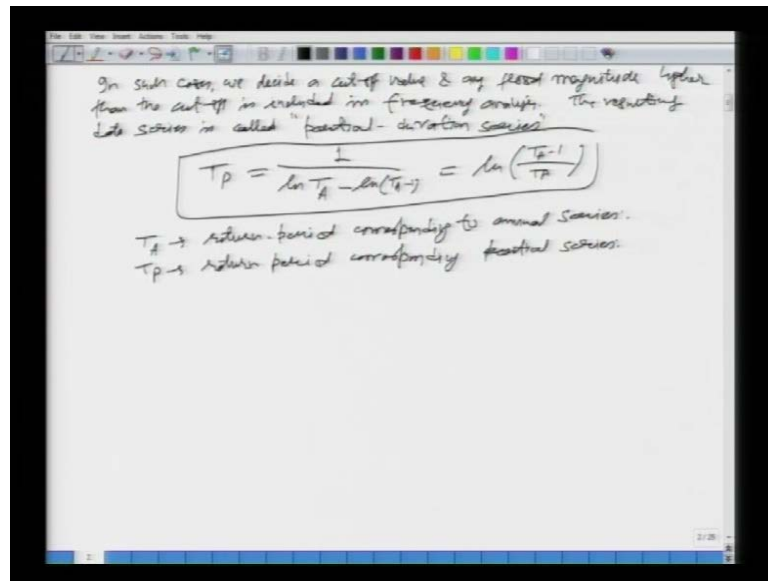 File Edit View Insert Actions Tools Help
In such cases, we decide a cut-off value & any flood magnitude higher
than the cut-off is included in frequency analysis. The resulting
data series is called "partial-duration series"
T_P = 1 / (ln T_A - ln(T_A-1)) = ln((T_A-1)/T_A)
T_A → return period corresponding to annual series.
T_P → return period corresponding partial series.
2/25